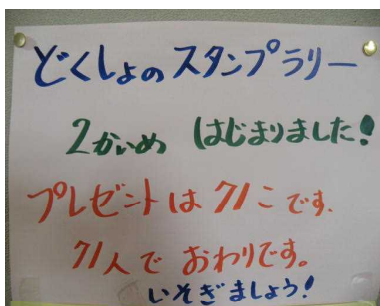 どくしょのスタンプラリー
2かいめ はじまりました!
プレゼントは 71こです.
71人で おわりです。
いそぎましょう!